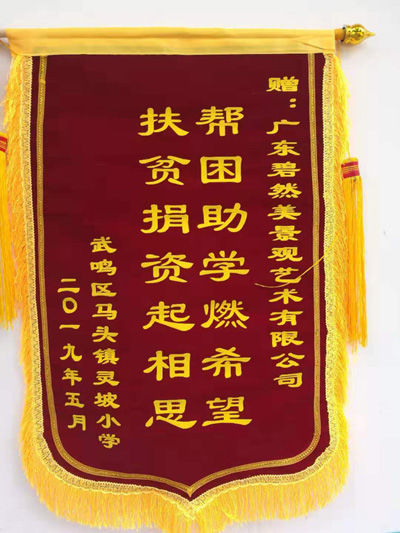 赠：广东碧然美景观艺术有限公司
帮困助学燃希望
扶贫捐资起相思
武鸣区马头镇灵坡小学
二〇一九年五月